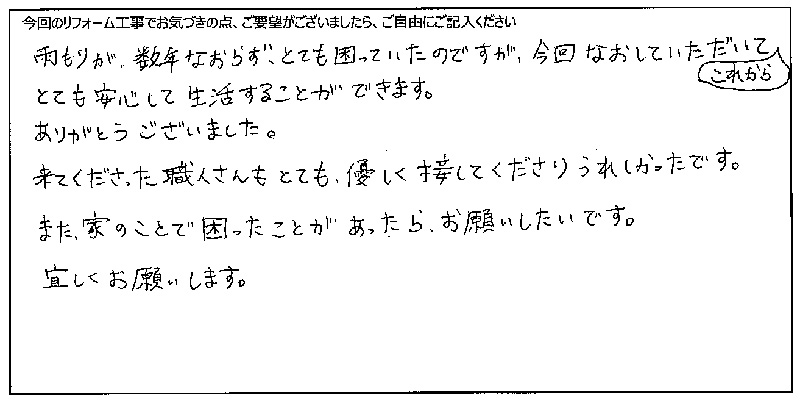 今回のリフォーム工事でお気づきの点、ご要望がございましたら、ご自由にご記入ください
雨もりが、数年なおらず、とても困っていたのですが、今回なおしていただいて
これから
とても安心して生活することができます。
ありがとうございました。
来てくださった職人さんもとても、優しく接してくださりうれしかったです。
また、家のことで困ったことがあったら、お願いしたいです。
宜しくお願いします。